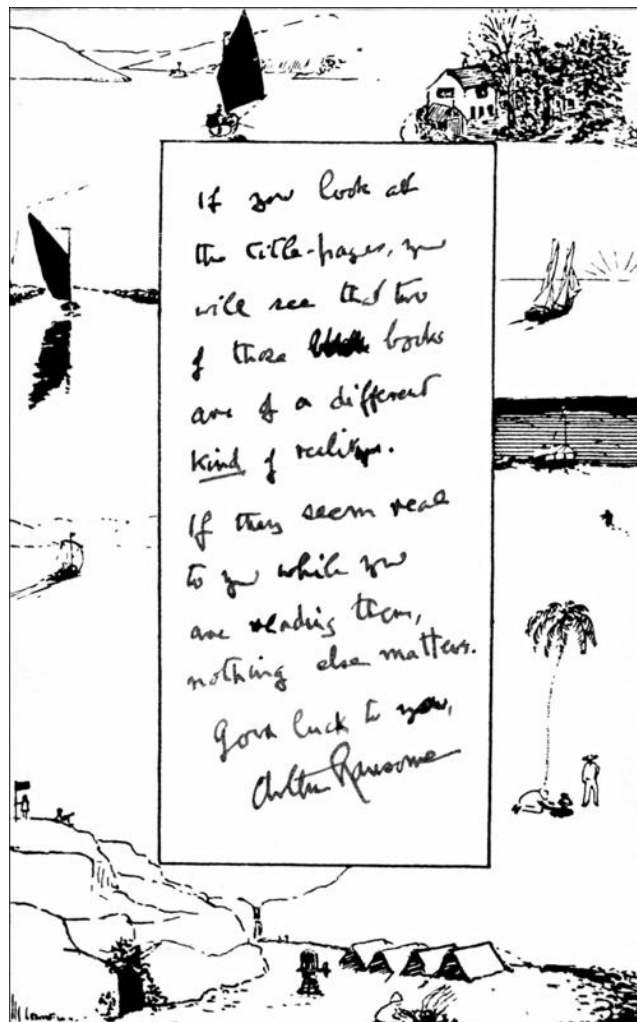 If you look at
the title-pages, you
will see that two
of those books
are of a different
kind of reality.
If they seem real
to you while you
are reading them,
nothing else matters.
Good luck to you,
Arthur Ransome